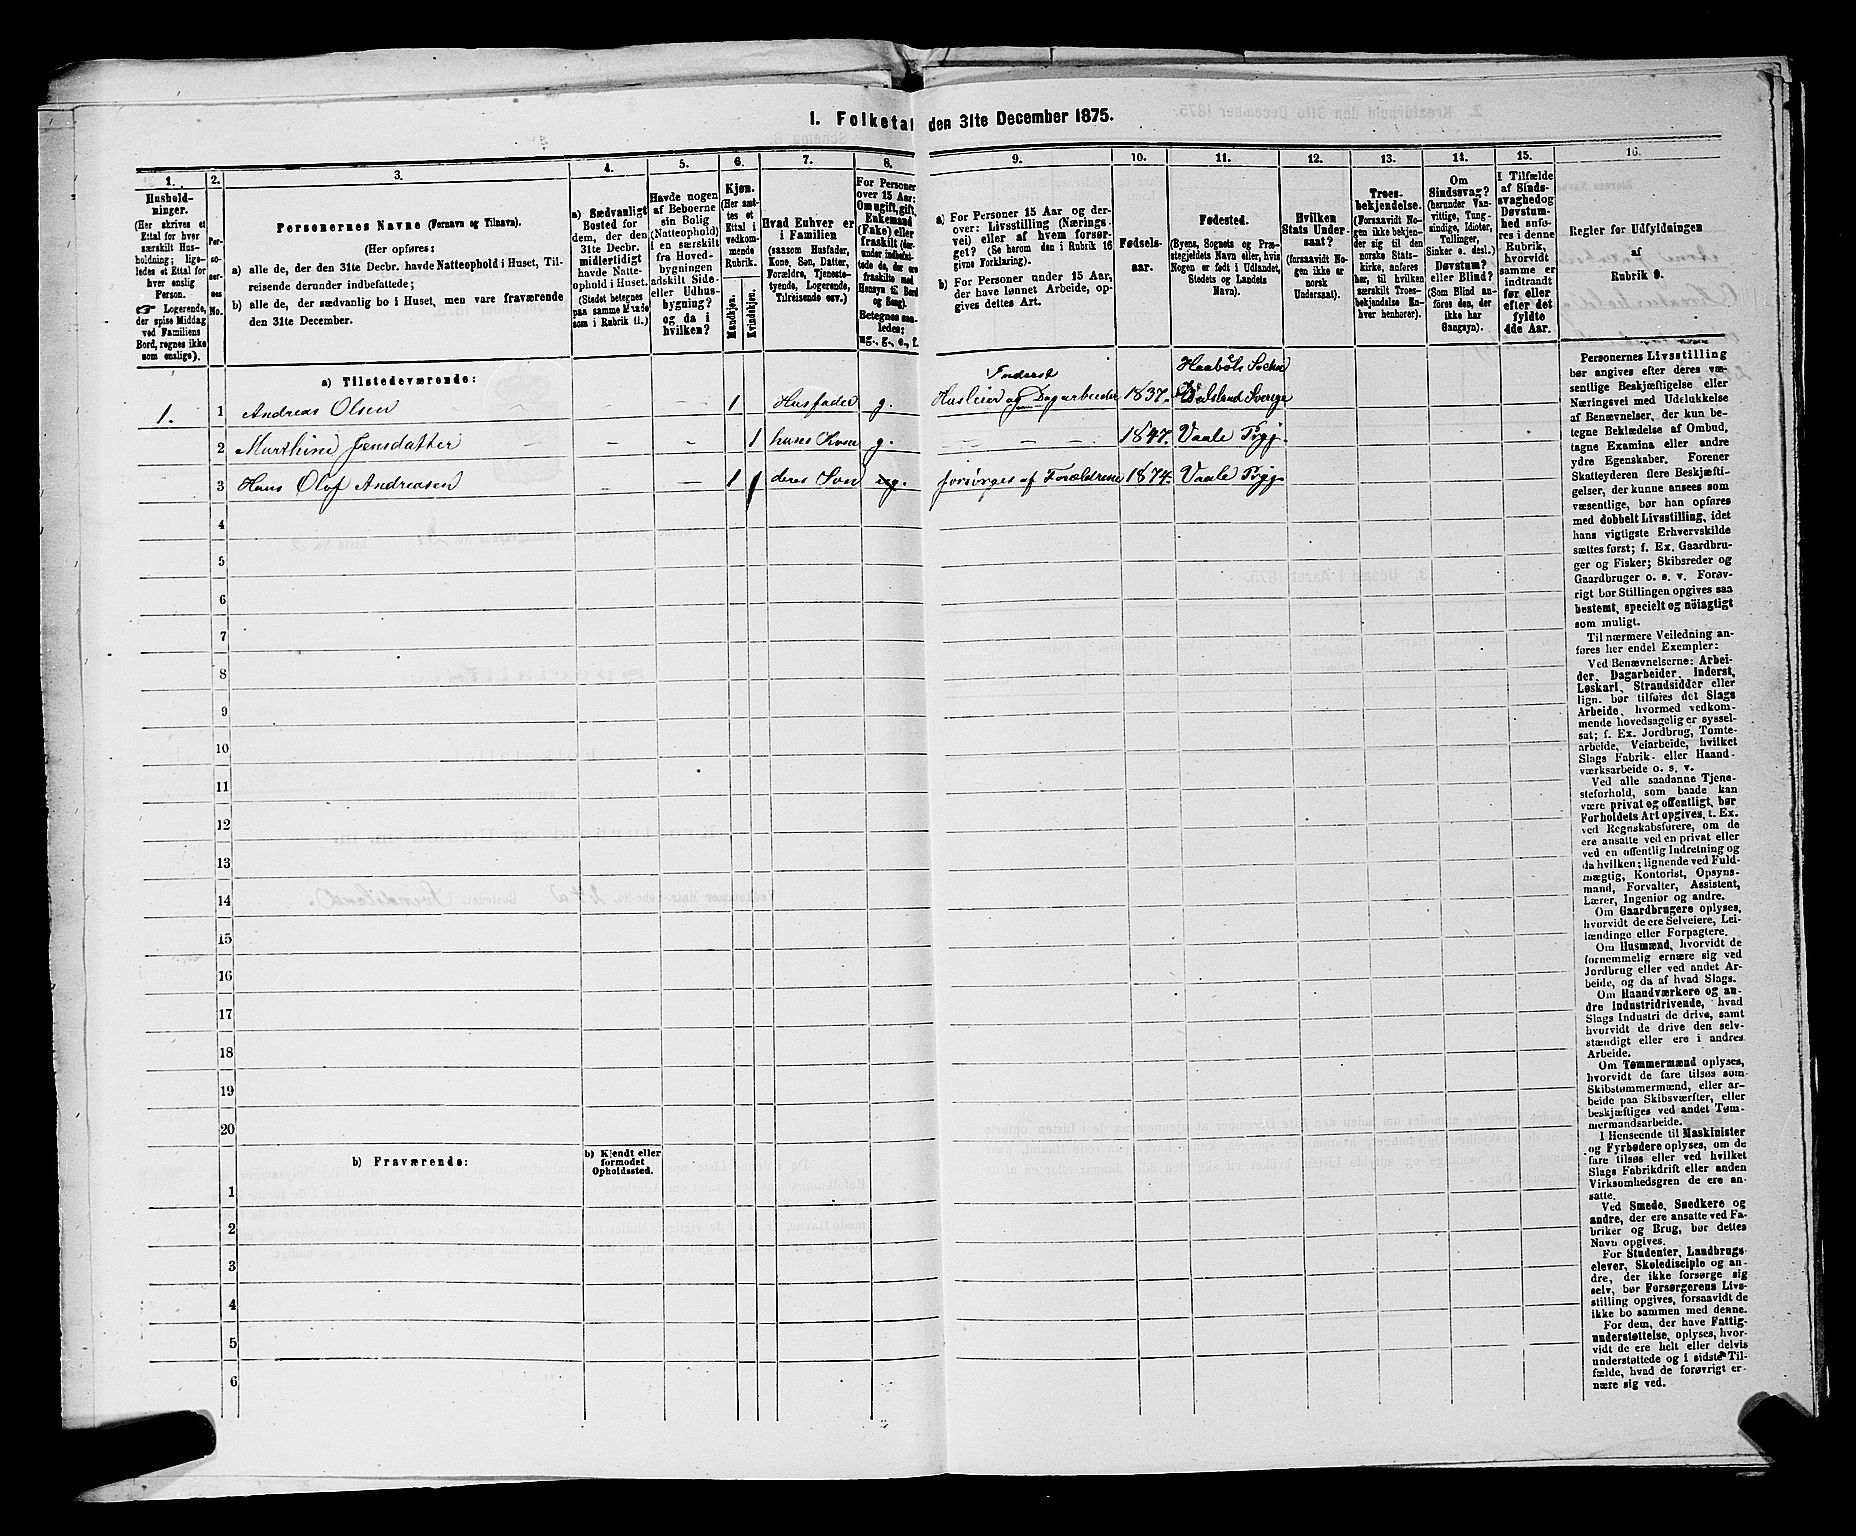 1. Folketal den 31te December 1875.
1. 2. 3. 4. 5. 6. 7. 8. 9. 10. 11. 12. 13. 14. 15. 16.
Hushold-
ninger.
(Her skrives et
Ettal for hver
særskilt Hus-
holdning; lige-
ledes et Ettal for
hver enslig
Person.
☞ Logerende,
der spise Middag
ved Familiens
Bord, regnes ikke
som enslige).
Per-
so-
ner-
nes
No.
Personernes Navne (Fornavn og Tilnavn).
(Her opføres:
a) alle de, der den 31te Decbr. havde Natteophold i Huset, Til-
reisende derunder indbefattede;
b) alle de, der sædvanlig bo i Huset, men vare fraværende
den 31te December.
a) Sædvanligt
Bosted for
dem, der den
31te Decbr.
midlertidigt
havde Natte-
ophold i Huset.
(Stedet betegnes
paa samme Maade
som i Rubrik 11.)
Havde nogen
af Beboerne
sin Bolig
(Natteophold)
i en særskilt
fra Hoved-
bygningen
adskilt Side-
eller Udhus-
bygning?
og da i
hvilken?
Kjøn.
(Her sæt-
tes et
Ettal i
vedkom-
mende
Rubrik.
Mandkjøn.
Kvindekjøn.
Hvad Enhver er
i Familien
(saasom Husfader,
Kone, Søn, Datter,
Forældre, Tjeneste-
tyende, Logerende,
Tilreisende osv.)
For Personer
over 15 Aar:
Om ugift, gift,
Enkemand
(Enke) eller
fraskilt (der-
under indbefat-
tede de, der ere
fraskilte med
Hensyn til Bord
og Seng).
Betegnes saa-
ledes:
ug., g., e., f.
a) For Personer 15 Aar og der-
over: Livsstilling (Nærings-
vei) eller af hvem forsør-
get (Se herom den i Rubrik 16
givne Forklaring).
b) For Personer under 15 Aar,
der have lønnet Arbeide, op-
gives dettes Art.
Fødsels-
aar.
Fødested.
(Byens, Sognets og Præ-
stegjeldets Navn eller, hvis
Nogen er født i Udlandet,
Stedets og Landets
Navn).
Hvilken
Stats Under-
saat?
(forsaavidt No-
gen ikke er
norsk
Undersaat).
Troes-
bekjendelse.
(Forsaavidt No-
gen ikke bekjen-
der sig til den
norske Stats-
kirke, anføres
her, til hvilken
særskilt Troes-
bekjendelse En-
hver henhører).
Om
Sindssvag?
(herunder Van-
vittige, Tung-
sindige, Idioter,
Tullinger,
Sinker o. desl.)
Døvstum?
eller Blind?
(Som Blind an-
føres den, der
ikke har
Gangsyn).
I Tilfælde
af Sinds-
svaghed og
Døvstum-
hed anfø-
res i denne
Rubrik,
hvorvidt
samme er
indtraadt
før eller
efter det
fyldte
4de Aar.
Regler for Udfyldningen
af
Rubrik 9.
a) Tilstedeværende:
1. 1 Andreas Olsen — — 1 Husfader g. Inderst Husleier og Dagarbeider 1837. Haabøls Sokn Dalsland Sverige
2 Marthine Jensdatter — — 1 hans Kone g. — — — 1847. Vaale Prgj.
3 Hans Olof Andreasen — — 1 deres Søn ug. forsørges af Forældrene 1874. Vaale Prgj
4
5
6
7
8
9
10
11
12
13
14
15
16
17
18
19
20
b) Fraværende:
b) Kjendt eller
formodet
Opholdssted.
1
2
3
4
5
6
Personernes Livsstilling
bør angives efter deres væ-
sentlige Beskjæftigelse eller
Næringsvei med Udelukkelse
af Benævnelser, der kun be-
tegne Beklædelse af Ombud,
tagne Examina eller andre
ydre Egenskaber. Forener
Skatteyderen flere Beskjæfti-
gelser, der kunne ansees som
væsentlige, bør han opføres
med dobbelt Livsstilling, idet
hans vigtigste Erhvervskilde
sættes først; f. Ex. Gaardbru-
ger og Fisker; Skibsreder og
Gaardbruger o. s. v. Forøv-
rigt bør Stillingen opgives saa
bestemt, specielt og nøiagtigt
som muligt.
Til nærmere Veiledning an-
føres her endel Exempler:
Ved Benævnelserne: Arbei-
der, Dagarbeider, Inderst,
Løskarl, Strandsidder eller
lign. bør tilføies det Slags
Arbeide, hvormed vedkom-
mende hovedsagelig er syssel-
sat; f. Ex. Jordbrug, Tomte-
arbeide, Veiarbeide, hvilket
Slags Fabrik- eller Haand-
værksarbeide o. s. v.
Ved alle saadanne Tjene-
steforhold, som baade kan
være privat og offentligt, bør
Forholdets Art opgives, t. Ex.
ved Regnskabsførere, om de
ere ansatte ved en privat eller
ved en offentlig Indretning og
da hvilken; lignende ved Fuld-
mægtig, Kontorist, Opsyns-
mand, Forvalter, Assistent,
Lærer, Ingeniør og andre.
Om Gaardbrugere oplyses,
hvorvidt de ere Selveiere, Lei-
lændinge eller Forpagtere.
Om Husmænd, hvorvidt de
fornemmelig ernære sig ved
Jordbrug eller ved andet Ar-
beide, og da af hvad Slags.
Om Haandværkere og an-
dre Industridrivende, hvad
Slags Industri de drive, samt
hvorvidt de drive den selv-
stændigt eller ere i andres
Arbeide.
Om Tømmermænd oplyses,
hvorvidt de fare tilsøs som
Skibstømmermænd, eller ar-
beide paa Skibsværfter, eller
beskjæftiges ved andet Tøm-
mermandsarbeide.
I Henseende til Maskinister
og Fyrbødere oplyses, om de
fare tilsøs eller ved hvilket
Slags Fabrikdrift eller anden
Virksomhedsgren de ere an-
satte.
Ved Smede, Snedkere og
andre, der ere ansatte ved Fa-
briker og Brug, bør dettes
Navn opgives.
For Studenter, Landbrugs-
elever, Skoledisciple og an-
dre, der ikke forsørge sig
selv, bør Forsørgerens Livs-
stilling opgives, forsaavidt de
ikke bo sammen med denne.
For dem, der have Fattig-
understøttelse, oplyses, hvor-
vidt de ere helt eller delvis
understøttede og i sidste Til-
fælde, hvad de forøvrigt er-
nære sig ved.